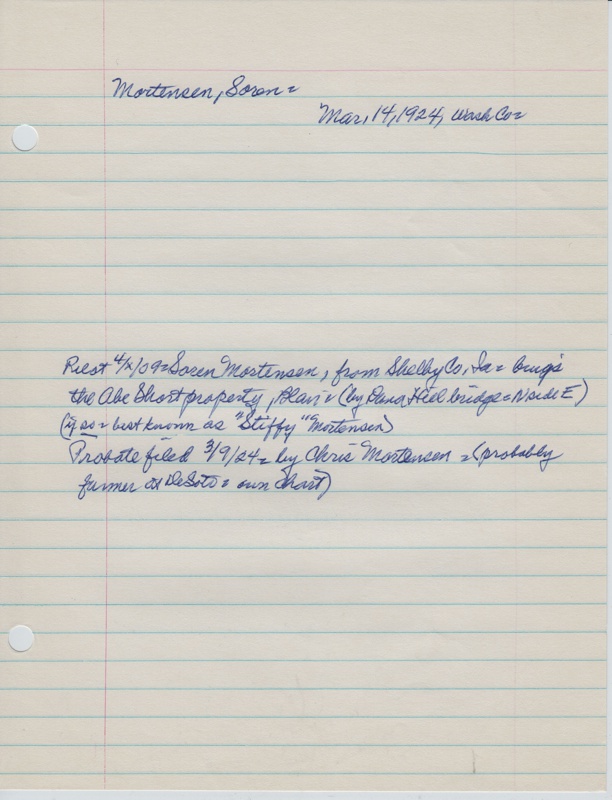 Mortensen, Soren =
Mar, 14, 1924, Wash Co =
Pilot 4/x/09 = Soren Mortensen, from Shelby Co, Ia = buys
the Abe Short property, Blair = (by Dana Hill bridge = N side E)
(if so = best known as "Stiffy" Mortensen)
Probate filed 3/9/24 = by Chris Mortensen = (probably
farmer at DeSoto = own chart)